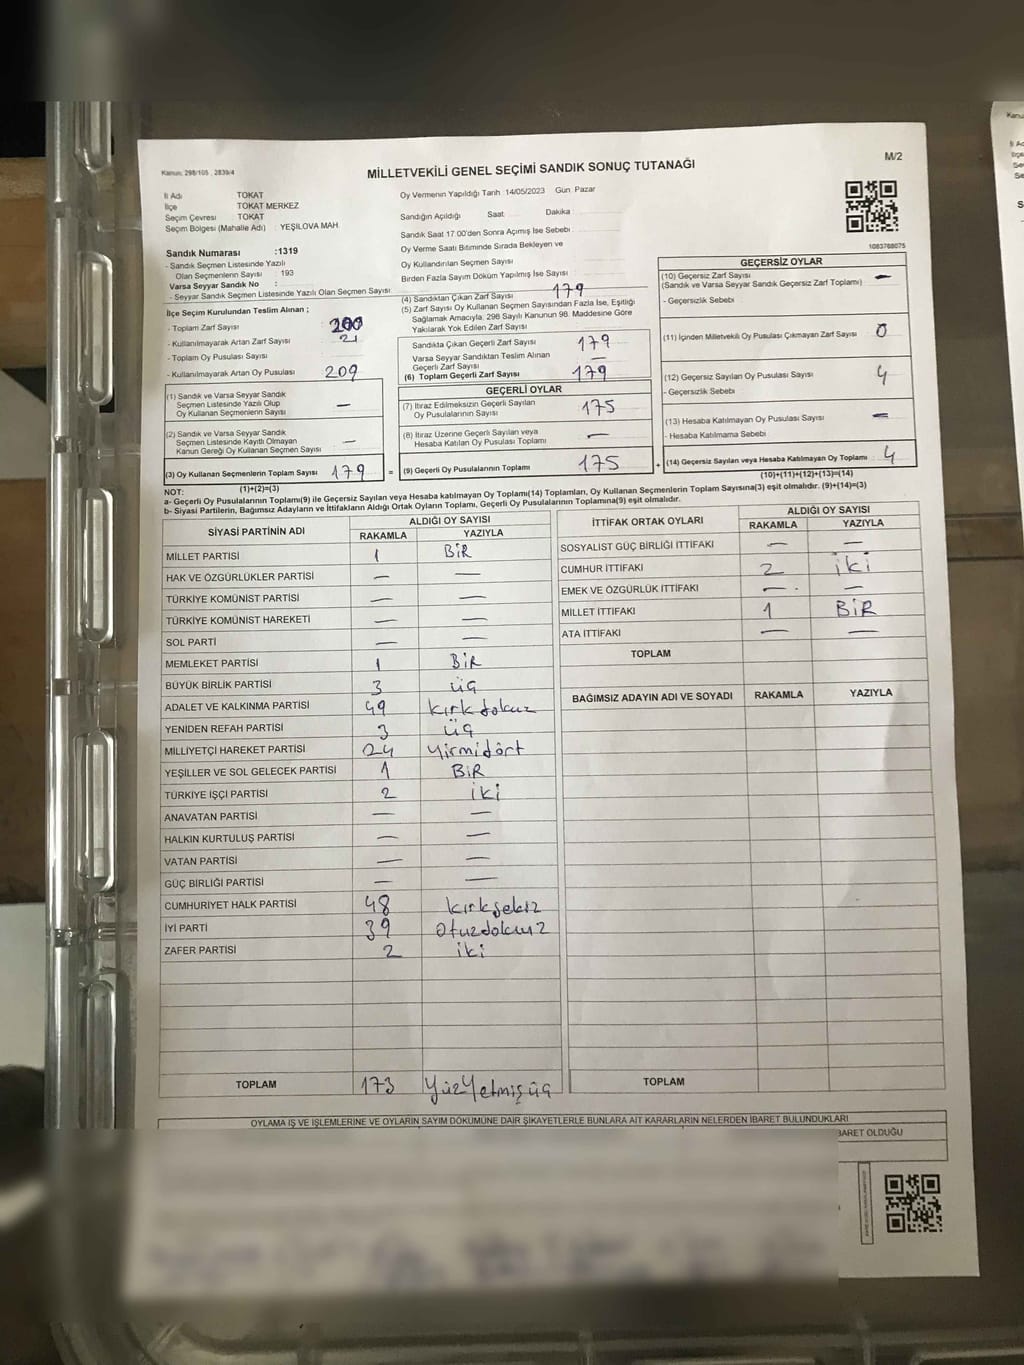 Kanun: 298/105 , 2839/4
MİLLETVEKİLİ GENEL SEÇİMİ SANDIK SONUÇ TUTANAĞI
M/2
İl Adı TOKAT
İlçe TOKAT MERKEZ
Seçim Çevresi TOKAT
Seçim Bölgesi (Mahalle Adı) : YEŞİLOVA MAH
Sandık Numarası :1319
- Sandık Seçmen Listesinde Yazılı
Olan Seçmenlerin Sayısı : 193
Varsa Seyyar Sandık No :
- Seyyar Sandık Seçmen Listesinde Yazılı Olan Seçmen Sayısı
İlçe Seçim Kurulundan Teslim Alınan ;
- Toplam Zarf Sayısı 200
- Kullanılmayarak Artan Zarf Sayısı 21
- Toplam Oy Pusulası Sayısı :
- Kullanılmayarak Artan Oy Pusulası 209
(1) Sandık ve Varsa Seyyar Sandık
Seçmen Listesinde Yazılı Olup
Oy Kullanan Seçmenlerin Sayısı —
(2) Sandık ve Varsa Seyyar Sandık
Seçmen Listesinde Kayıtlı Olmayan
Kanun Gereği Oy Kullanan Seçmen Sayısı —
(3) Oy Kullanan Seçmenlerin Toplam Sayısı 179 =
(1)+(2)=(3)
Oy Vermenin Yapıldığı Tarih :14/05/2023 Gün: Pazar
Sandığın Açıldığı Saat Dakika :
Sandık Saat 17:00'den Sonra Açımış İse Sebebi :
Oy Verme Saati Bitiminde Sırada Bekleyen ve
Oy Kullandırılan Seçmen Sayısı :
Birden Fazla Sayım Döküm Yapılmış İse Sayısı :
(4) Sandıktan Çıkan Zarf Sayısı 179
(5) Zarf Sayısı Oy Kullanan Seçmen Sayısından Fazla İse, Eşitliği
Sağlamak Amacıyla; 298 Sayılı Kanunun 98. Maddesine Göre
Yakılarak Yok Edilen Zarf Sayısı :
Sandıkta Çıkan Geçerli Zarf Sayısı 179
Varsa Seyyar Sandıktan Teslim Alınan
Geçerli Zarf Sayısı —
(6) Toplam Geçerli Zarf Sayısı 179
GEÇERLİ OYLAR
(7) İtiraz Edilmeksizin Geçerli Sayılan
Oy Pusulalarının Sayısı 175
(8) İtiraz Üzerine Geçerli Sayılan veya
Hesaba Katılan Oy Pusulası Toplamı —
(9) Geçerli Oy Pusulalarının Toplamı 175 +
1083768075
GEÇERSİZ OYLAR
(10) Geçersiz Zarf Sayısı —
(Sandık ve Varsa Seyyar Sandık Geçersiz Zarf Toplamı)
- Geçersizlik Sebebi
(11) İçinden Milletvekili Oy Pusulası Çıkmayan Zarf Sayısı 0
(12) Geçersiz Sayılan Oy Pusulası Sayısı 4
- Geçersizlik Sebebi
(13) Hesaba Katılmayan Oy Pusulası Sayısı —
- Hesaba Katılmama Sebebi
(14) Geçersiz Sayılan veya Hesaba Katılmayan Oy Toplamı 4
(10)+(11)+(12)+(13)=(14)
NOT:
a- Geçerli Oy Pusulalarının Toplamı(9) ile Geçersiz Sayılan veya Hesaba katılmayan Oy Toplamı(14) Toplamları, Oy Kullanan Seçmenlerin Toplam Sayısına(3) eşit olmalıdır. (9)+(14)=(3)
b- Siyasi Partilerin, Bağımsız Adayların ve İttifakların Aldığı Ortak Oyların Toplamı, Geçerli Oy Pusulalarının Toplamına(9) eşit olmalıdır.
SİYASİ PARTİNİN ADI ALDIĞI OY SAYISI
RAKAMLA YAZIYLA
MİLLET PARTİSİ 1 BİR
HAK VE ÖZGÜRLÜKLER PARTİSİ — —
TÜRKİYE KOMÜNİST PARTİSİ — —
TÜRKİYE KOMÜNİST HAREKETİ — —
SOL PARTİ — —
MEMLEKET PARTİSİ 1 BİR
BÜYÜK BİRLİK PARTİSİ 3 üç
ADALET VE KALKINMA PARTİSİ 49 kırkdokuz
YENİDEN REFAH PARTİSİ 3 üç
MİLLİYETÇİ HAREKET PARTİSİ 24 yirmidört
YEŞİLLER VE SOL GELECEK PARTİSİ 1 BİR
TÜRKİYE İŞÇİ PARTİSİ 2 iki
ANAVATAN PARTİSİ — —
HALKIN KURTULUŞ PARTİSİ — —
VATAN PARTİSİ — —
GÜÇ BİRLİĞİ PARTİSİ — —
CUMHURİYET HALK PARTİSİ 48 kırksekiz
İYİ PARTİ 39 otuzdokuz
ZAFER PARTİSİ 2 iki
TOPLAM 173 yüzyetmişüç
İTTİFAK ORTAK OYLARI ALDIĞI OY SAYISI
RAKAMLA YAZIYLA
SOSYALİST GÜÇ BİRLİĞİ İTTİFAKI — —
CUMHUR İTTİFAKI 2 iki
EMEK VE ÖZGÜRLÜK İTTİFAKI — —
MİLLET İTTİFAKI 1 BİR
ATA İTTİFAKI — —
TOPLAM
BAĞIMSIZ ADAYIN ADI VE SOYADI RAKAMLA YAZIYLA
TOPLAM
OYLAMA İŞ VE İŞLEMLERİNE VE OYLARIN SAYIM DÖKÜMÜNE DAİR ŞİKAYETLERLE BUNLARA AİT KARARLARIN NELERDEN İBARET BULUNDUKLARI
BARET OLDUĞU